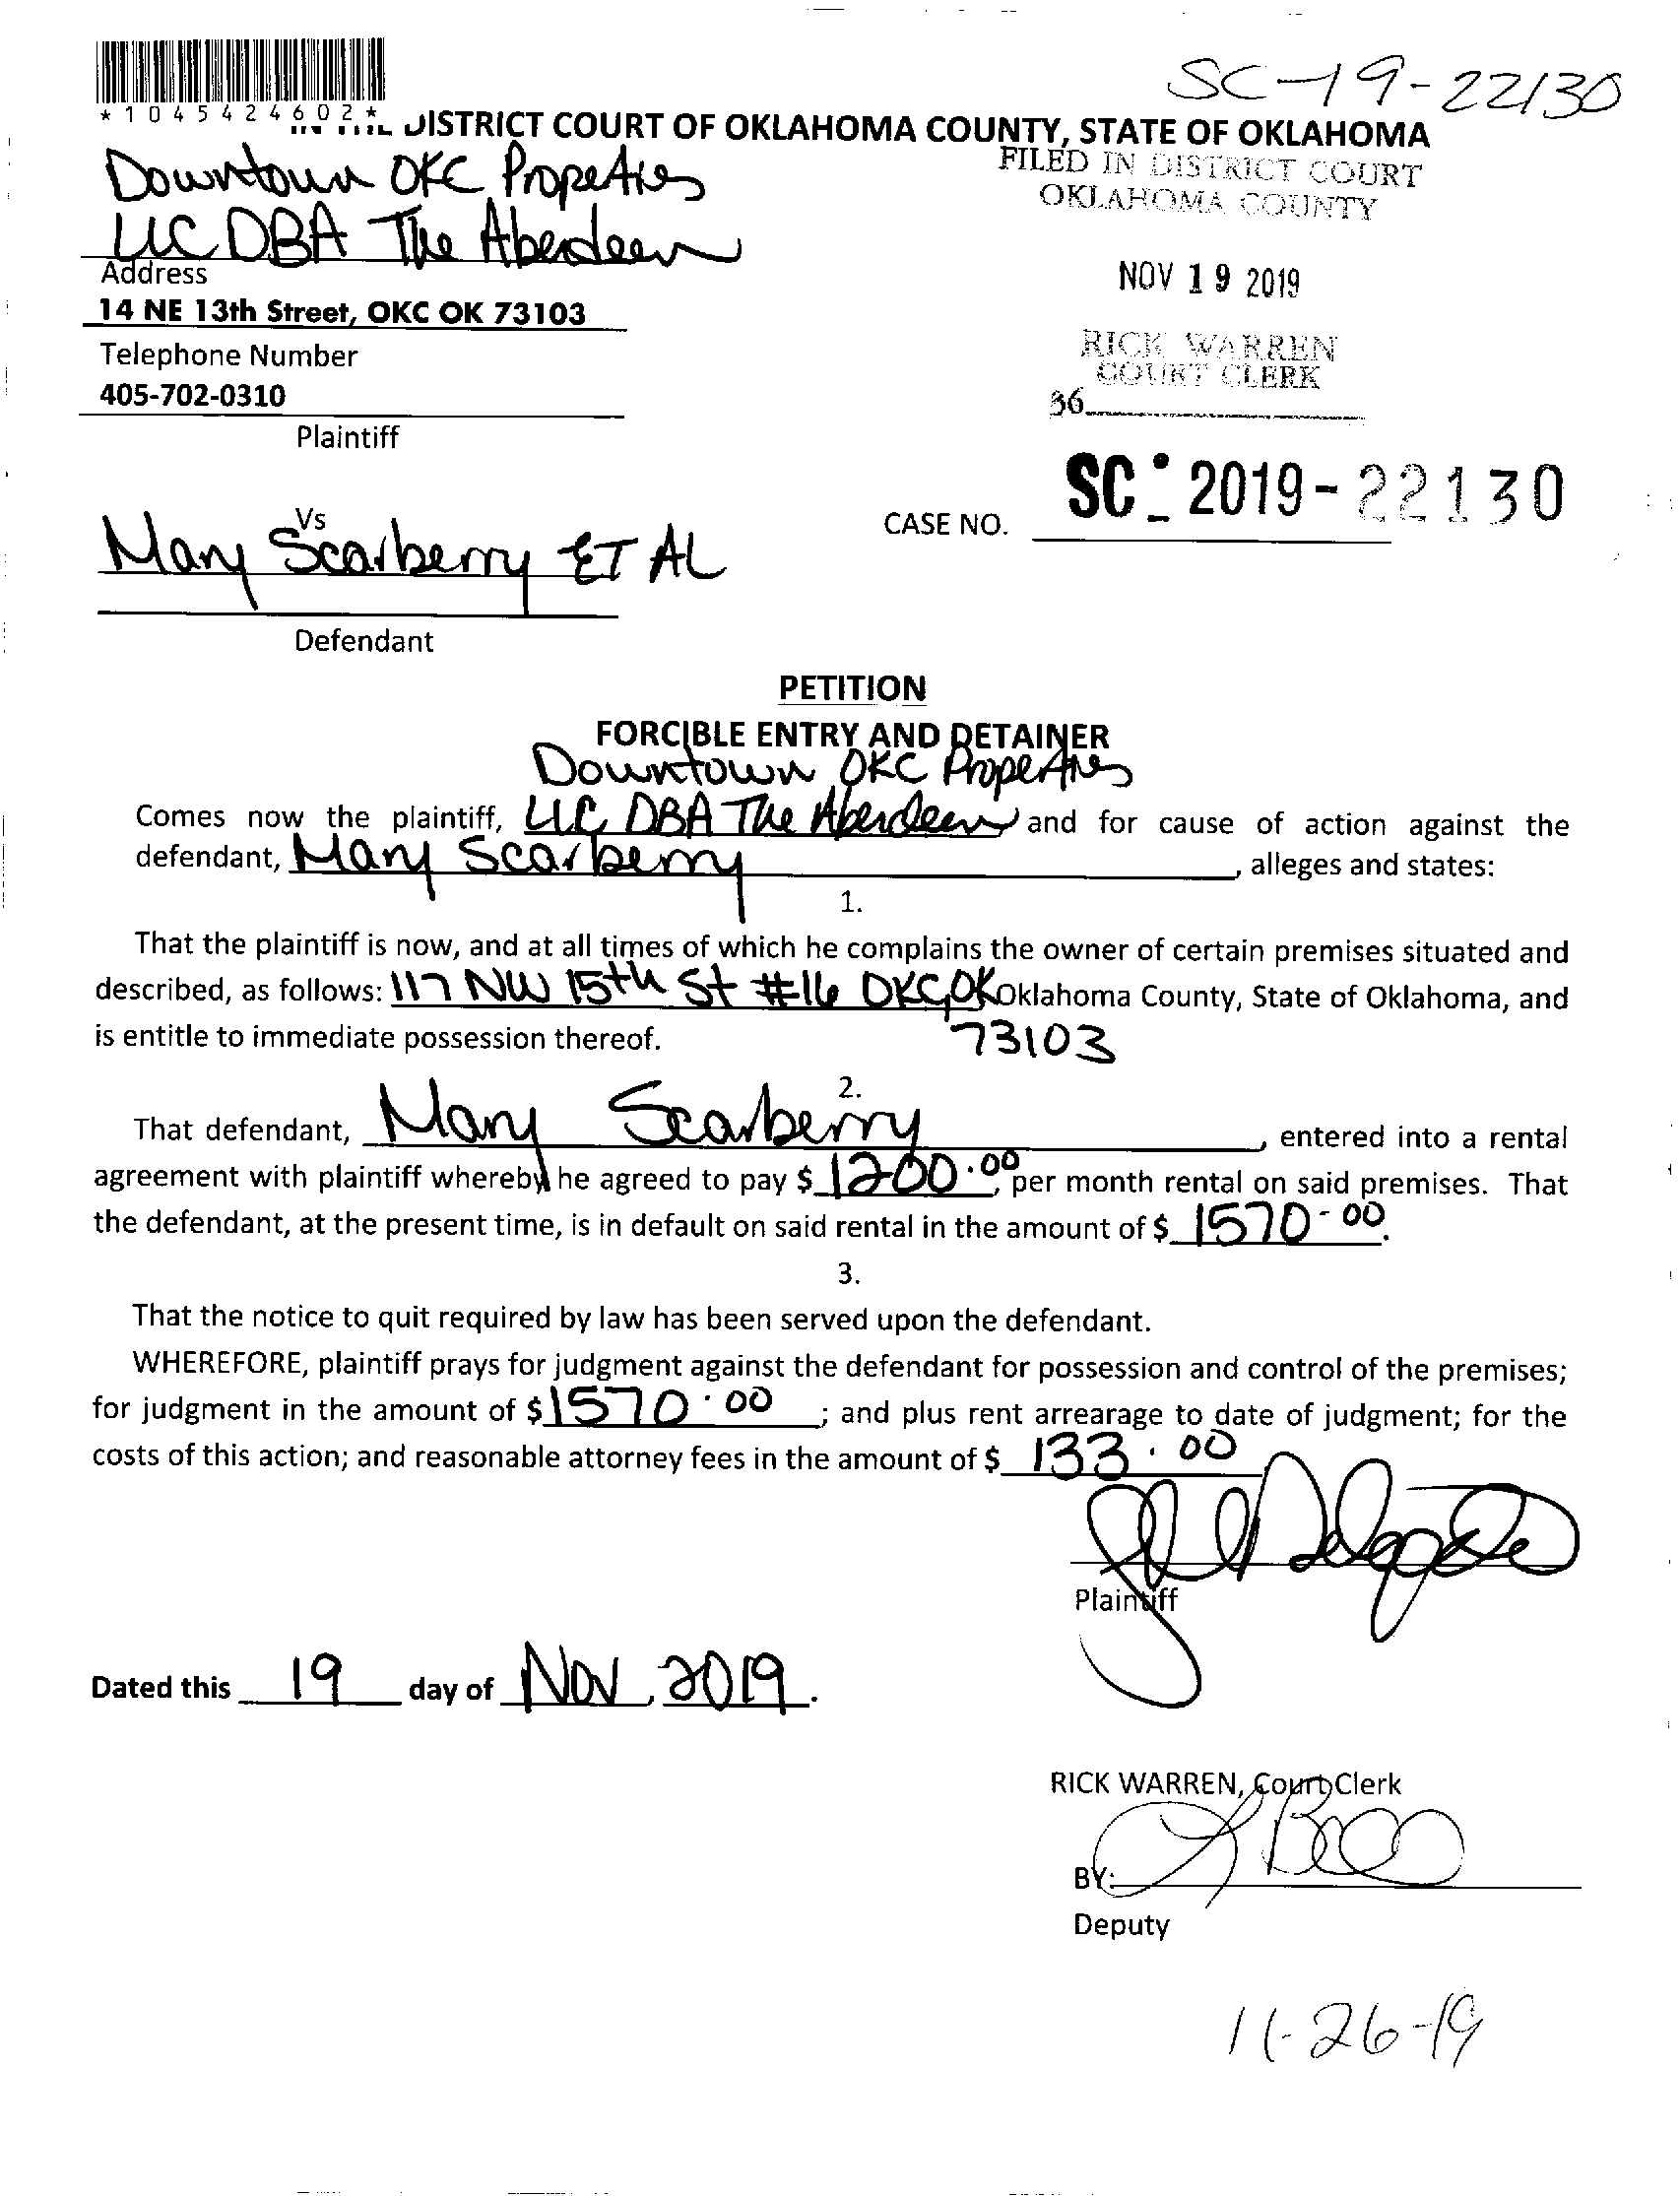 SC-19-22130
*1045424602*
DISTRICT COURT OF OKLAHOMA COUNTY, STATE OF OKLAHOMA
FILED IN DISTRICT COURT
OKLAHOMA COUNTY
Downtown OKC Properties
LLC DBA The Aberdeen
Address
14 NE 13th Street, OKC OK 73103
NOV 19 2019
Telephone Number
405-702-0310
RICK WARREN
COURT CLERK
36
Plaintiff
Vs
CASE NO. SC-2019-22130
Mary Scarberry ET AL
Defendant
PETITION
FORCIBLE ENTRY AND DETAINER
Downtown OKC Properties
Comes now the plaintiff, LLC DBA The Aberdeen and for cause of action against the
defendant, Mary Scarberry, alleges and states:
1.
That the plaintiff is now, and at all times of which he complains the owner of certain premises situated and
described, as follows: 117 NW 15th St #16 OKC, OK Oklahoma County, State of Oklahoma, and
is entitle to immediate possession thereof. 73103
2.
That defendant, Mary Scarberry, entered into a rental
agreement with plaintiff whereby he agreed to pay $ 1200.00, per month rental on said premises. That
the defendant, at the present time, is in default on said rental in the amount of $ 1570-00.
3.
That the notice to quit required by law has been served upon the defendant.
WHEREFORE, plaintiff prays for judgment against the defendant for possession and control of the premises;
for judgment in the amount of $1570.00; and plus rent arrearage to date of judgment; for the
costs of this action; and reasonable attorney fees in the amount of $ 133.00
Plaintiff
Dated this 19 day of Nov, 2019.
RICK WARREN, Court Clerk
BY:
Deputy
11-26-19